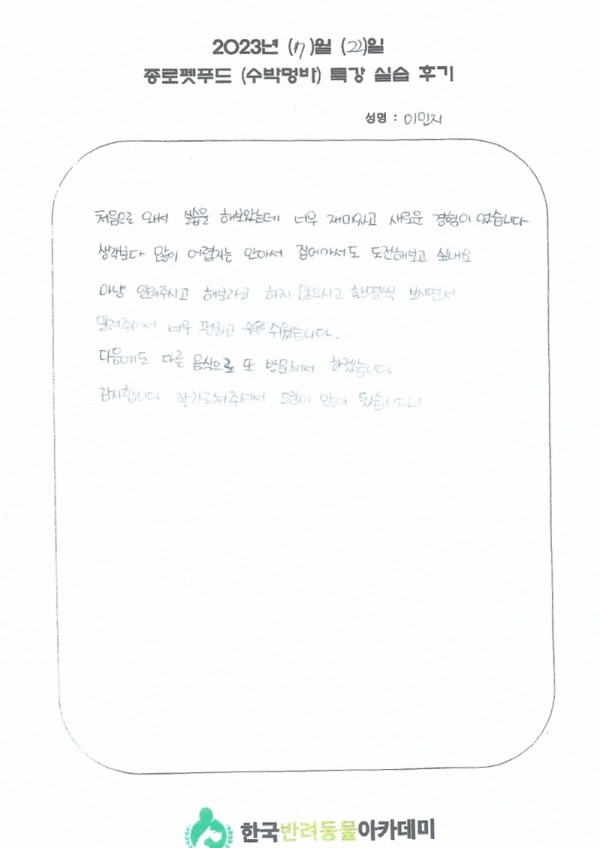 2023년 (7)월 (22)일
종로펫푸드 (수박멍바) 특강 실습 후기
성명 : 이민지
처음으로 와서 실습을 해보았는데 너무 재미있고 새로운 경험이 었습니다
생각보다 많이 어렵지는 안아서 집에가서도 도전해보고 싶내요
마냥 알려주시고 해보라고 하지 않으시고 한명씩 보시면서
알려주셔서 너무 편하고 쉬웠습니다.
다음에도 다른 음식으로 또 방문해서 하겠습니다
감사합니다 잘가르쳐주셔서 도움이 많이 됬습니다!
한국반려동물아카데미